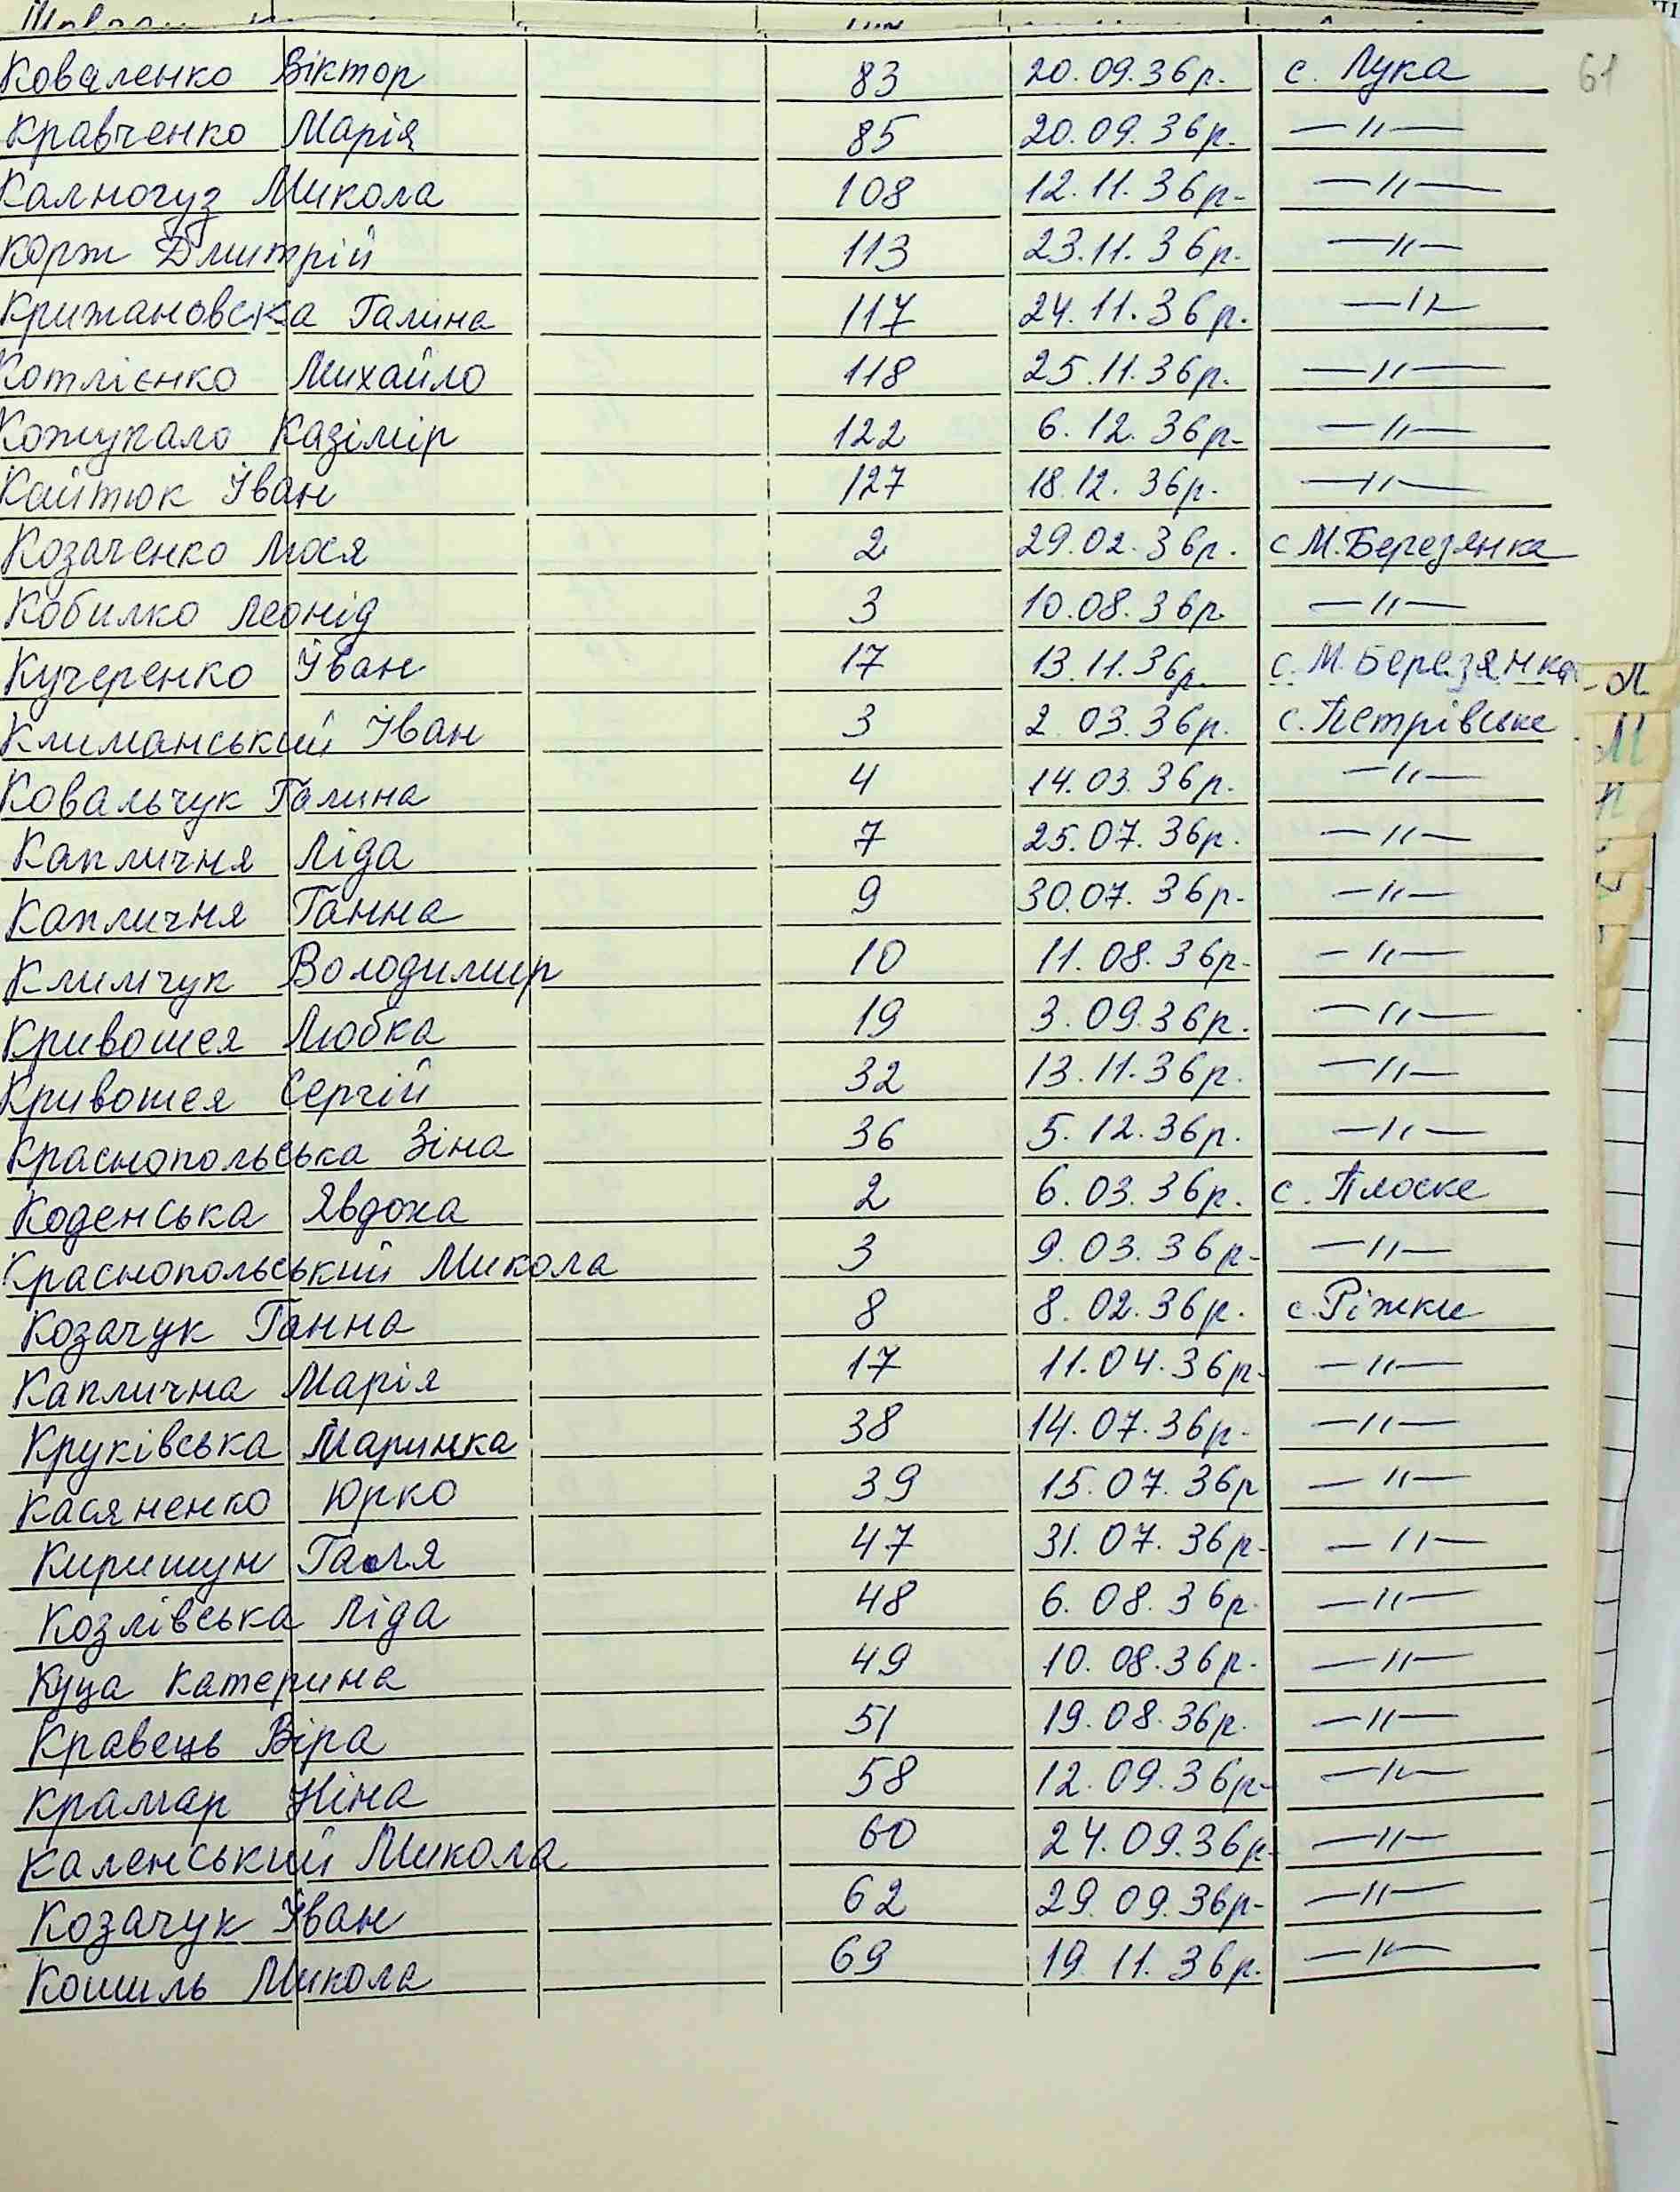 61
Коваленко Віктор 83 20.09.36р. с. Лука
Кравченко Марія 85 20.09.36р. —〃—
Калногуз Микола 108 12.11.36р. —〃—
Корж Дмитрій 113 23.11.36р. —〃—
Крижановска Галина 117 24.11.36р. —〃—
Котлієнко Михайло 118 25.11.36р. —〃—
Кожупало Казімір 122 6.12.36р. —〃—
Кайтюк Іван 127 18.12.36р. —〃—
Козаченко Люся 2 29.02.36р. с М.Березянка
Кобилко Леонід 3 10.08.36р. —〃—
Кучеренко Іван 17 13.11.36р. с. М.Березянка
Климанський Іван 3 2.03.36р. с. Петрівське
Ковальчук Галина 4 14.03.36р. —〃—
Капличня Ліда 7 25.07.36р. —〃—
Капличня Ганна 9 30.07.36р. —〃—
Климчук Володимир 10 11.08.36р. —〃—
Кривошея Любка 19 3.09.36р. —〃—
Кривошея Сергій 32 13.11.36р. —〃—
Краснопольська Зіна 36 5.12.36р. —〃—
Коденська Явдоха 2 6.03.36р. с. Плоске
Краснопольський Микола 3 9.03.36р. —〃—
Козачук Ганна 8 8.02.36р. с. Ріжки
Каплична Марія 17 11.04.36р. —〃—
Круківська Маринка 38 14.07.36р. —〃—
Касяненко Юрко 39 15.07.36р —〃—
Киришун Галя 47 31.07.36р. —〃—
Козлівська Ліда 48 6.08.36р. —〃—
Куца Катерина 49 10.08.36р. —〃—
Кравець Віра 51 19.08.36р. —〃—
Крамар Ніна 58 12.09.36р. —〃—
Каленський Микола 60 24.09.36р. —〃—
Козачук Іван 62 29.09.36р. —〃—
Кошиль Микола 69 19.11.36р. —〃—
Л
М